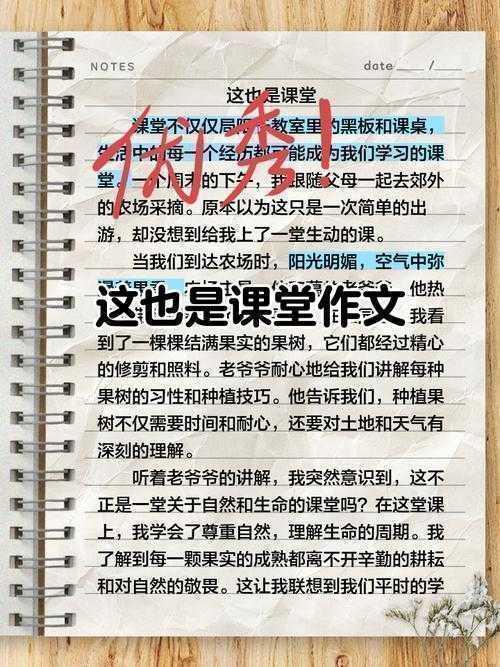 NOTES
date /
这也是课堂
优秀!
课堂不仅仅局限于教室里的黑板和课桌，
生活中的每一个经历都可能成为我们学习的课
堂。一个周末的下午，我跟随父母一起去郊外
的农场采摘。原本以为这只是一次简单的出
游，却没想到给我上了一堂生动的课。
当我们到达农场时，阳光明媚，空气中弥
他热
这也是课堂作文
我看
到了一棵棵结满果实的果树，它们都经过精心
的修剪和照料。老爷爷耐心地给我们讲解每种
果树的习性和种植技巧。他告诉我们，种植果
树不仅需要时间和耐心，还要对土地和天气有
深刻的理解。
听着老爷爷的讲解，我突然意识到，这不
正是一堂关于自然和生命的课堂吗？在这堂课
上，我学会了尊重自然，理解生命的周期。我
了解到每一颗果实的成熟都离不开辛勤的耕耘
和对自然的敬畏。这让我联想到我们平时的学